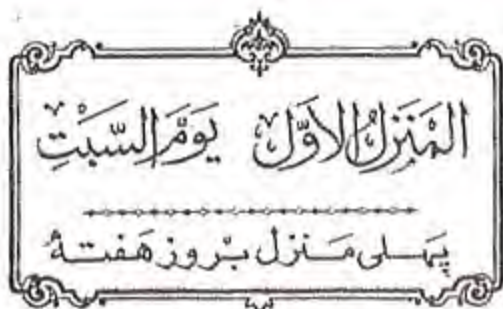 المَنزِلُ الأوَّل يَومَ السَّبتِ
پہلی مَنزل بروز ھَفتہ